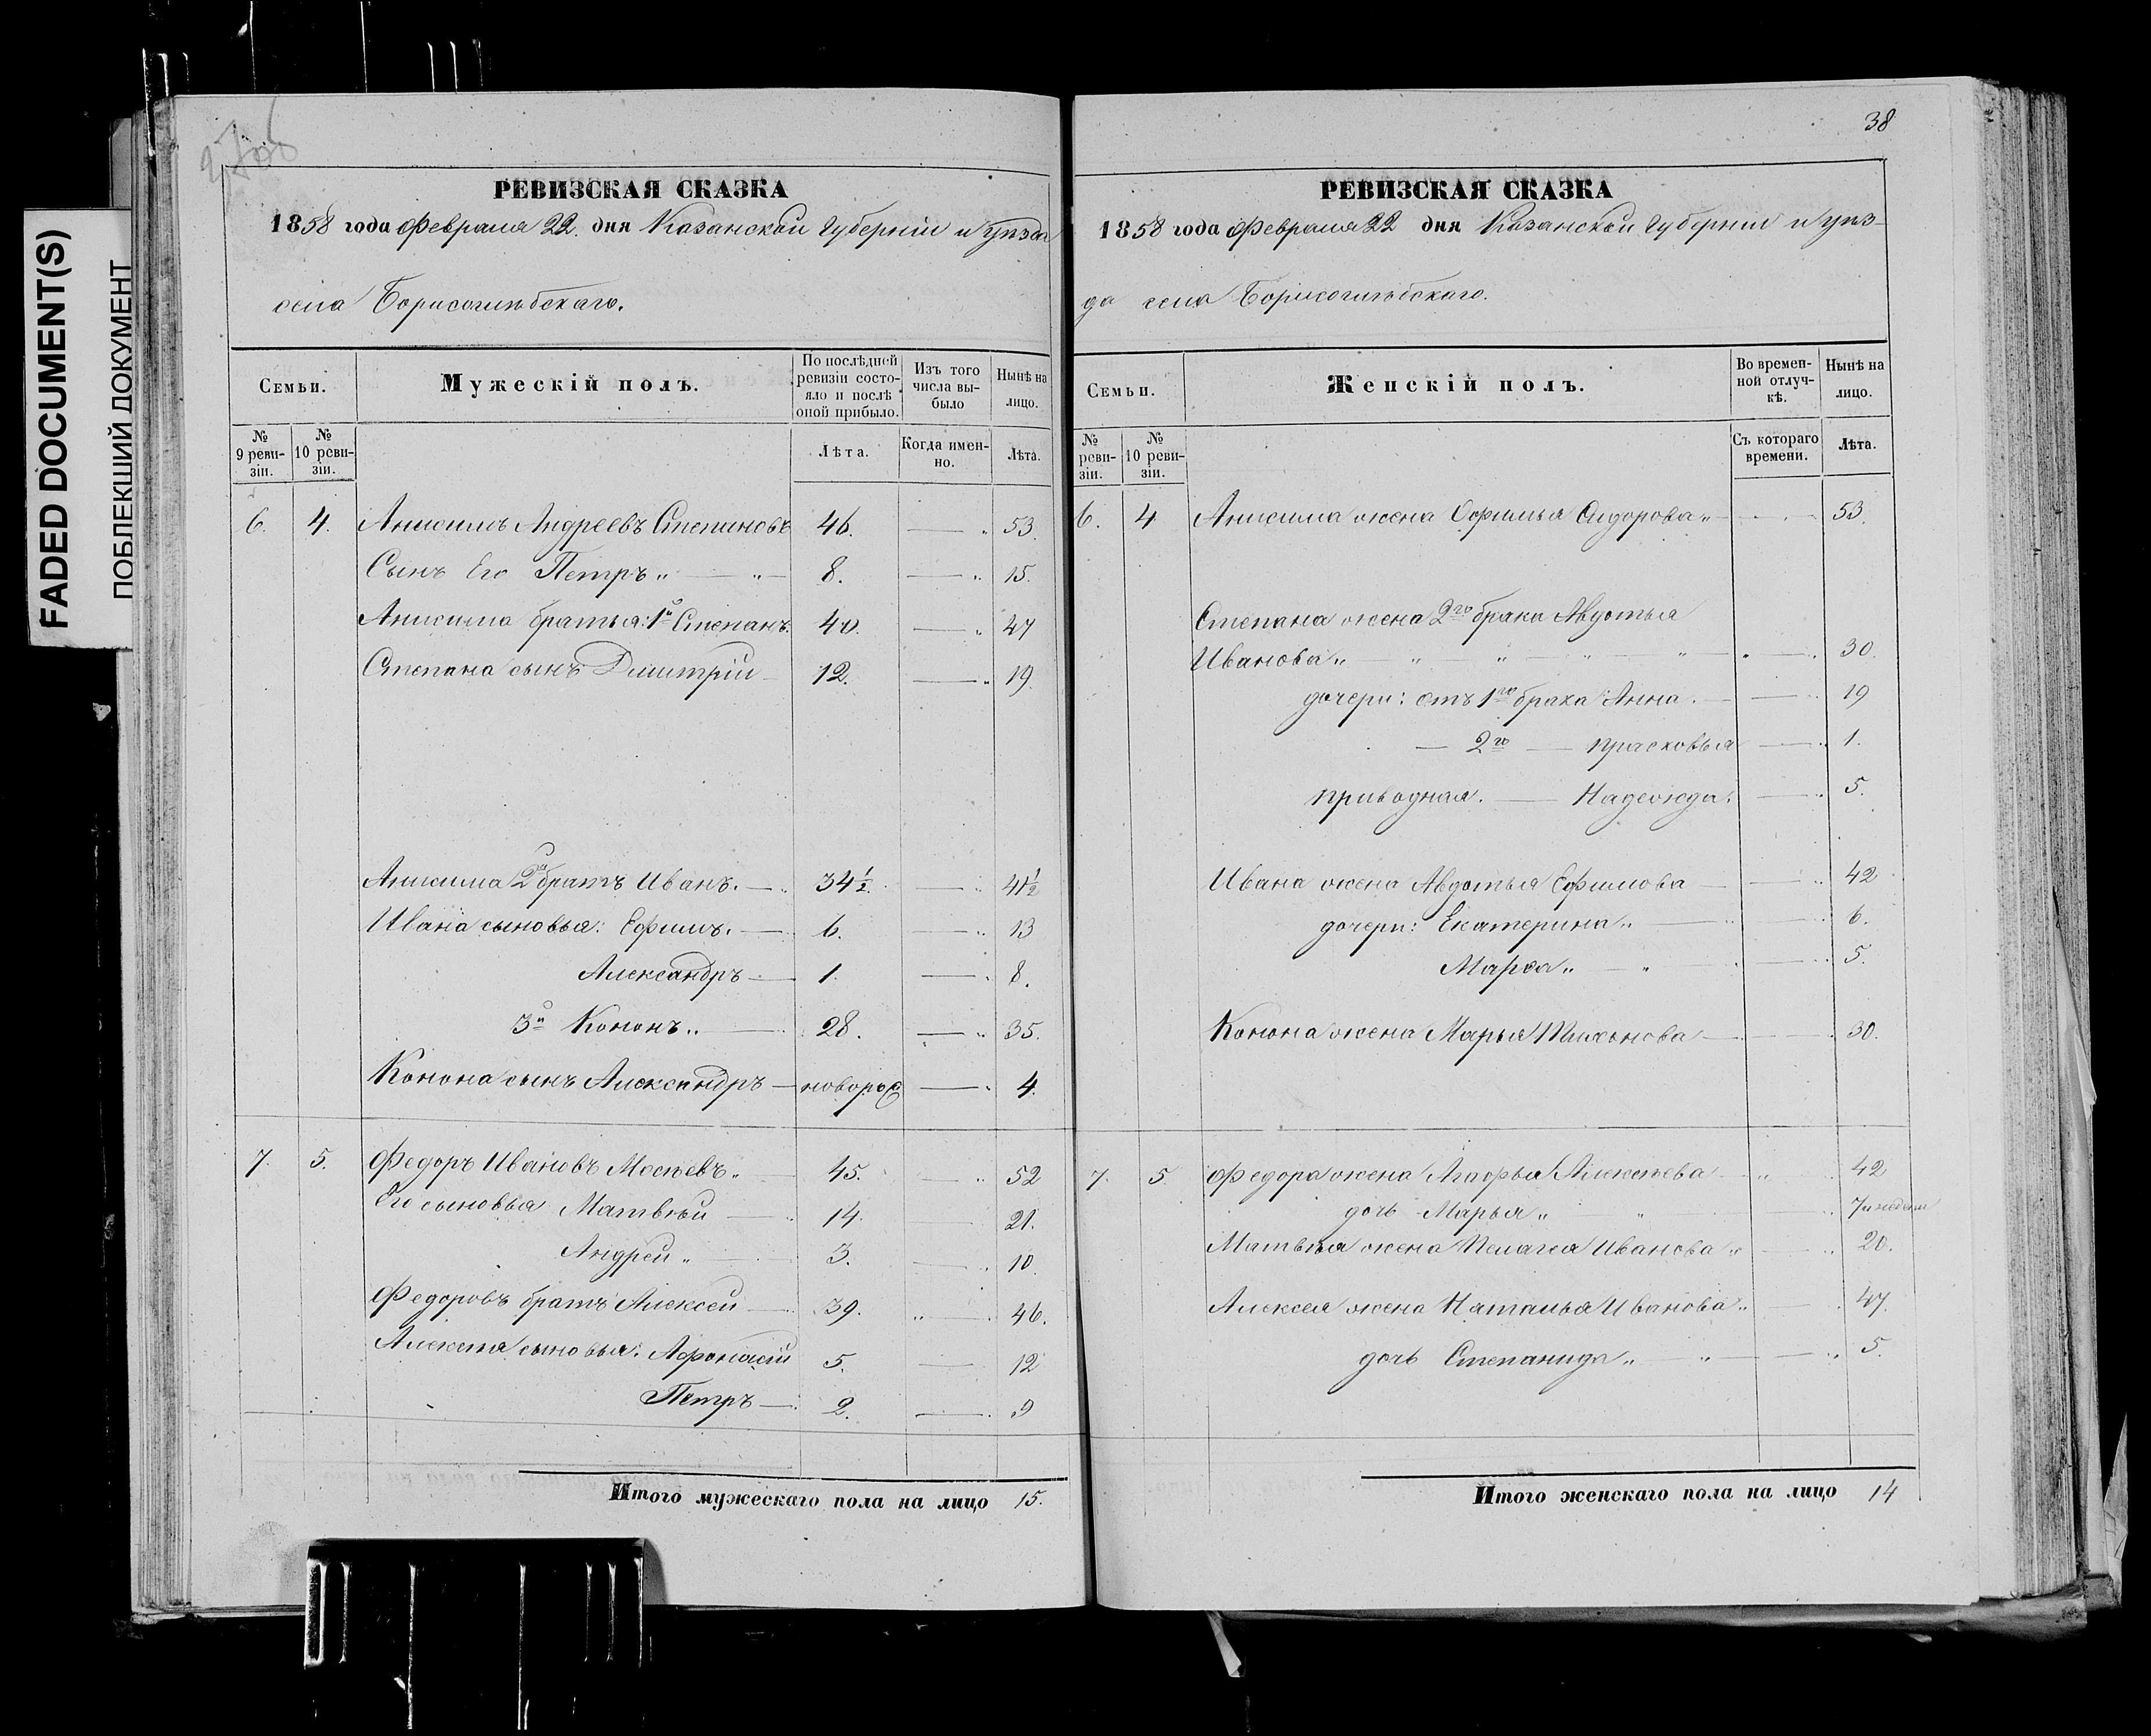 FADED DOCUMENT(S)
ПОБЛЕКШИЙ ДОКУМЕНТ
РЕВИЗСКАЯ СКАЗКА
1858 года Февраля 22. дня Казанской губерніи и уѣзда
села Борисоглѣбскаго.
Семьи.
Мужескій полъ.
По послѣдней ревизіи состояло и послѣ оной прибыло.
Изъ того числа выбыло
Нынѣ на лицо.
№ 9 ревизіи.
№ 10 ревизіи.
Лѣта.
Когда именно.
Лѣта.
6. 4. Анисимъ Андреевъ Степановъ 46. — 53.
Сынъ Его Петръ „ — „ — 8. — „ 15.
Анисима братья: 1й Степанъ. 40. — „ 47
Степана сынъ Димитрій — 12. — „ 19.
Анисима 2й братъ Иванъ. — „ 34½. — „ 41½
Ивана сыновья: Ефимъ. — 6. — „ 13
Александръ — 1. — „ 8.
3й Кононъ „ — 28. — „ 35.
Конона сынъ Александръ — новорож — „ 4.
7. 5. Федоръ Ивановъ Мосѣевъ „ 45. — „ 52
Его сыновья Матвѣй — 14. 21.
Андрей „ — 3. — „ 10.
Федоровъ братъ Алексей — 39. „ — 46.
Алексея сыновья: Афонасій 5. — 12
Петръ — 2. — 9
Итого мужескаго пола на лицо 15.
38
РЕВИЗСКАЯ СКАЗКА
1858 года Февраля 22 дня Казанской губерніи и уѣз-
да села Борисоглѣбскаго.
Семьи.
Женскій полъ.
Во временной отлучкѣ.
Нынѣ на лицо.
№ ревизіи.
№ 10 ревизіи.
Съ котораго времени.
Лѣта.
6. 4 Анисима жена Ефимья Сидорова „ — 53.
Степана жена 2го брака Авдотья
Иванова „ — „ — „ — „ — „ — 30.
дочери: отъ 1го брака Анна. — 19
— 2го — Прасковья — „ 1.
приводная. — Надежда. — „ 5.
Ивана жена Авдотья Ефимова — „ 42
дочери: Екатерина „ — 6.
Марѳа „ — „ 5.
Конона жена Марья Тихонова — 30.
7. 5 Федора жена Агафья Алексѣева — „ 42
дочь Марья „ — „ 7и недели
Матвѣя жена Пелагея Иванова „ — „ 20.
Алексея жена Наталья Иванова „ — 47.
дочь Степанида „ — „ — „ 5.
Итого женскаго пола на лицо 14